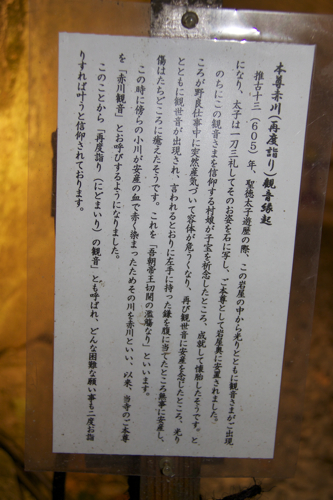 本尊赤川（再度詣り）観音縁起
推古十三（605）年、聖徳太子遊歴の際、この岩屋の中から光りとともに観音さまがご出現
になり、太子は一刀三礼してそのお姿を石に写し、ご本尊として岩屋奥に安置されました。
のちにこの観音さまを信仰する村娘が子宝を祈念したところ、成就して懐胎したそうです。と
ころが野良仕事中に突然産気づいて容体が危うくなり、再び観世音に安産を念じたところ、光り
とともに観世音が出現され、言われるとおりに左手に持った鎌を腹に当てたところ無事に安産し、
傷はたちどころに癒えたそうです。これを「吾朝帝王切開の濫觴なり」といいます。
この時に傍らの小川が安産の血で赤く染まったためその川を赤川といい、以来、当寺のご本尊
を「赤川観音」とお呼びするようになりました。
このことから「再度詣り（にどまいり）の観音」とも呼ばれ、どんな困難な願い事も二度お詣
りすれば叶うと信仰されております。